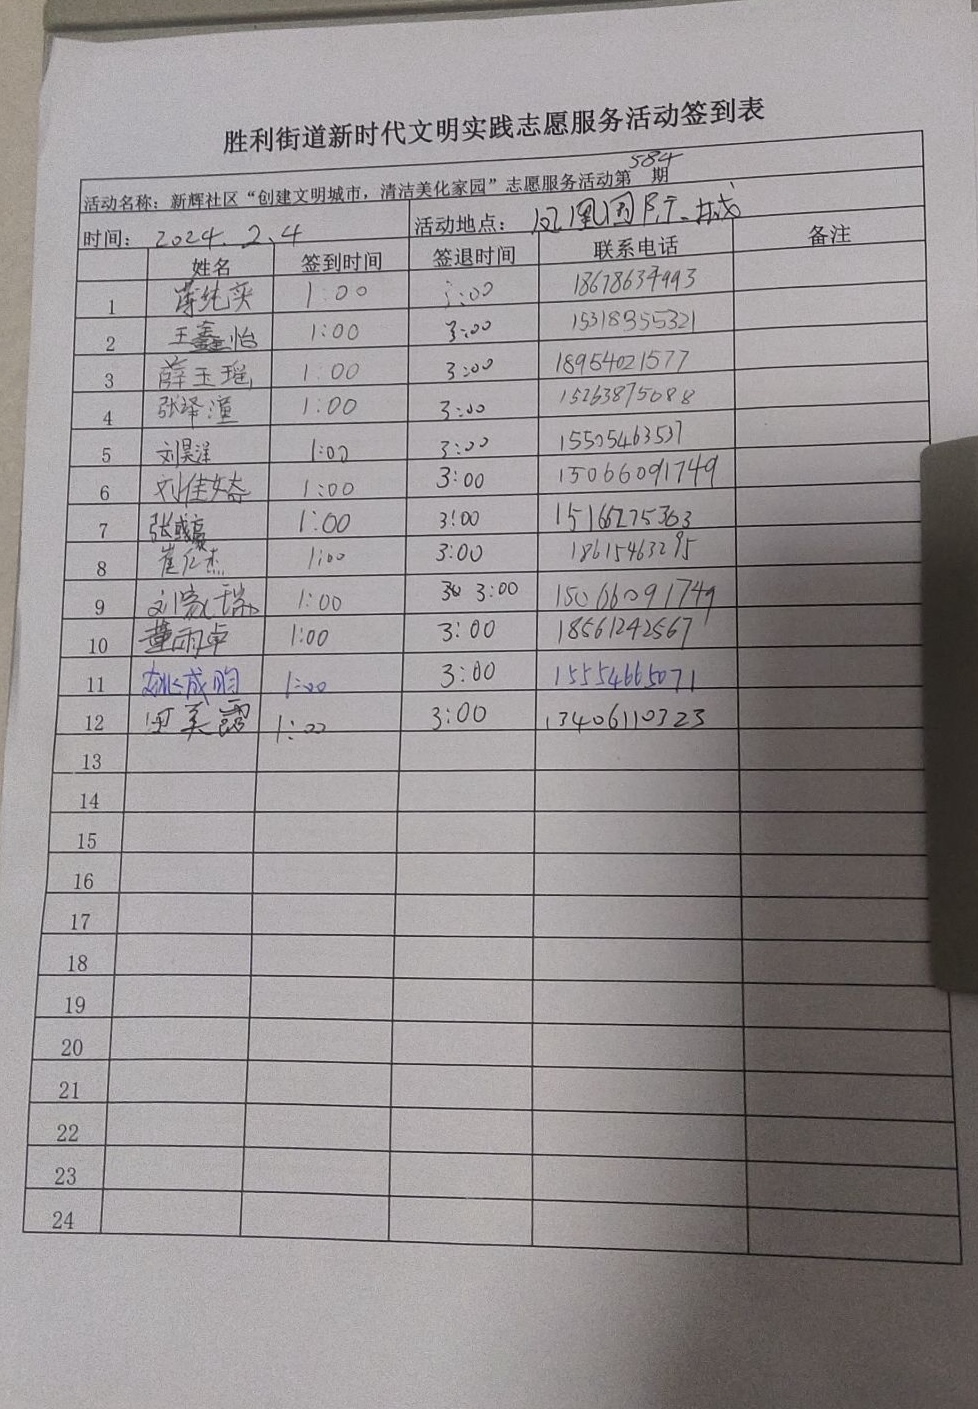 胜利街道新时代文明实践志愿服务活动签到表
活动名称：新辉社区“创建文明城市，清洁美化家园”志愿服务活动第584期
时间：2024.2.4 活动地点：凤凰国际城
姓名 签到时间 签退时间 联系电话 备注
1 1:00 3:00 18678634993
2 王鑫怡 1:00 3:00 15318355321
3 薛玉瑶 1:00 3:00 18954021577
4 张译潼 1:00 3:00 15263875088
5 刘昊洋 1:00 3:00 15505463537
6 刘佳琦 1:00 3:00 15066091749
7 张彧豪 1:00 3:00 15166275363
8 崔仁杰 1:00 3:00 18615463295
9 刘家瑞 1:00 3:00 15066091749
10 董雨卓 1:00 3:00 18561242567
11 姚成昀 1:00 3:00 15554665071
12 美露 1:00 3:00 13406110323
13
14
15
16
17
18
19
20
21
22
23
24